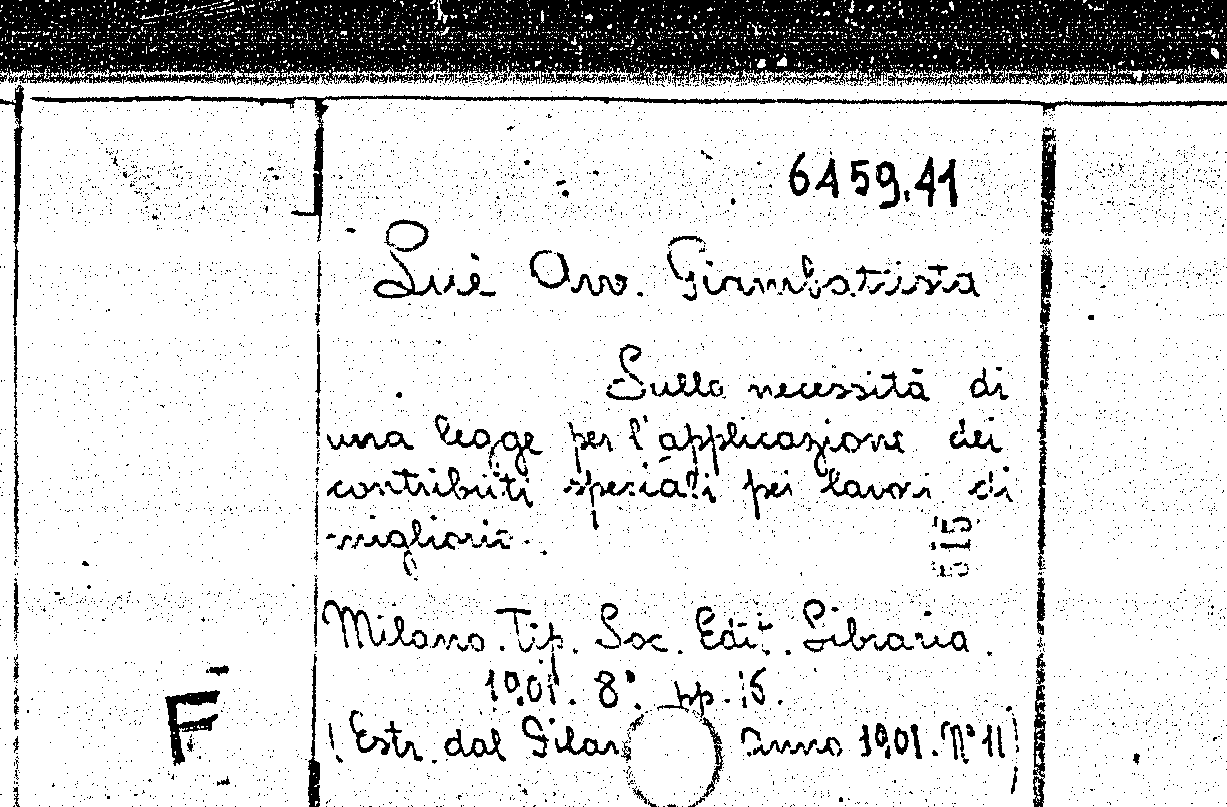 6459.41
Lué Avv. Giambattista
Sulla necessità di
una legge per l'applicazione dei
contributi speciali pei lavori di
miglioria.
515
Milano. Tip. Soc. Edit. Libraria.
1901. 8°. pp. 15.
F
(Estr. dal Filan anno 1901. N° 11)